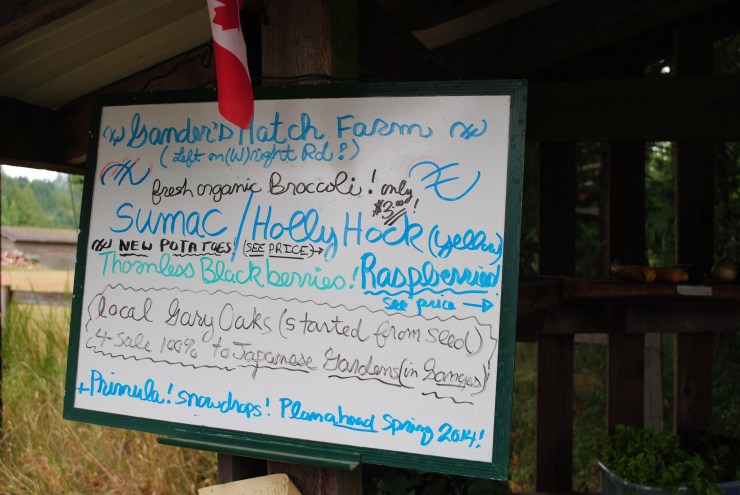 Gander's Hatch Farm
(Left on (W)right Rd!)
fresh organic Broccoli! only
$3.00!
Sumac / Holly Hock (yellow)
NEW POTATOES! (SEE PRICE→
Thornless Blackberries! Raspberries!
see price →
Local Gary Oaks (started from seed)
4 sale 100% to Japanese Gardens (in Ganges)
+ Primula! snowdrops! Plan ahead Spring 2014!